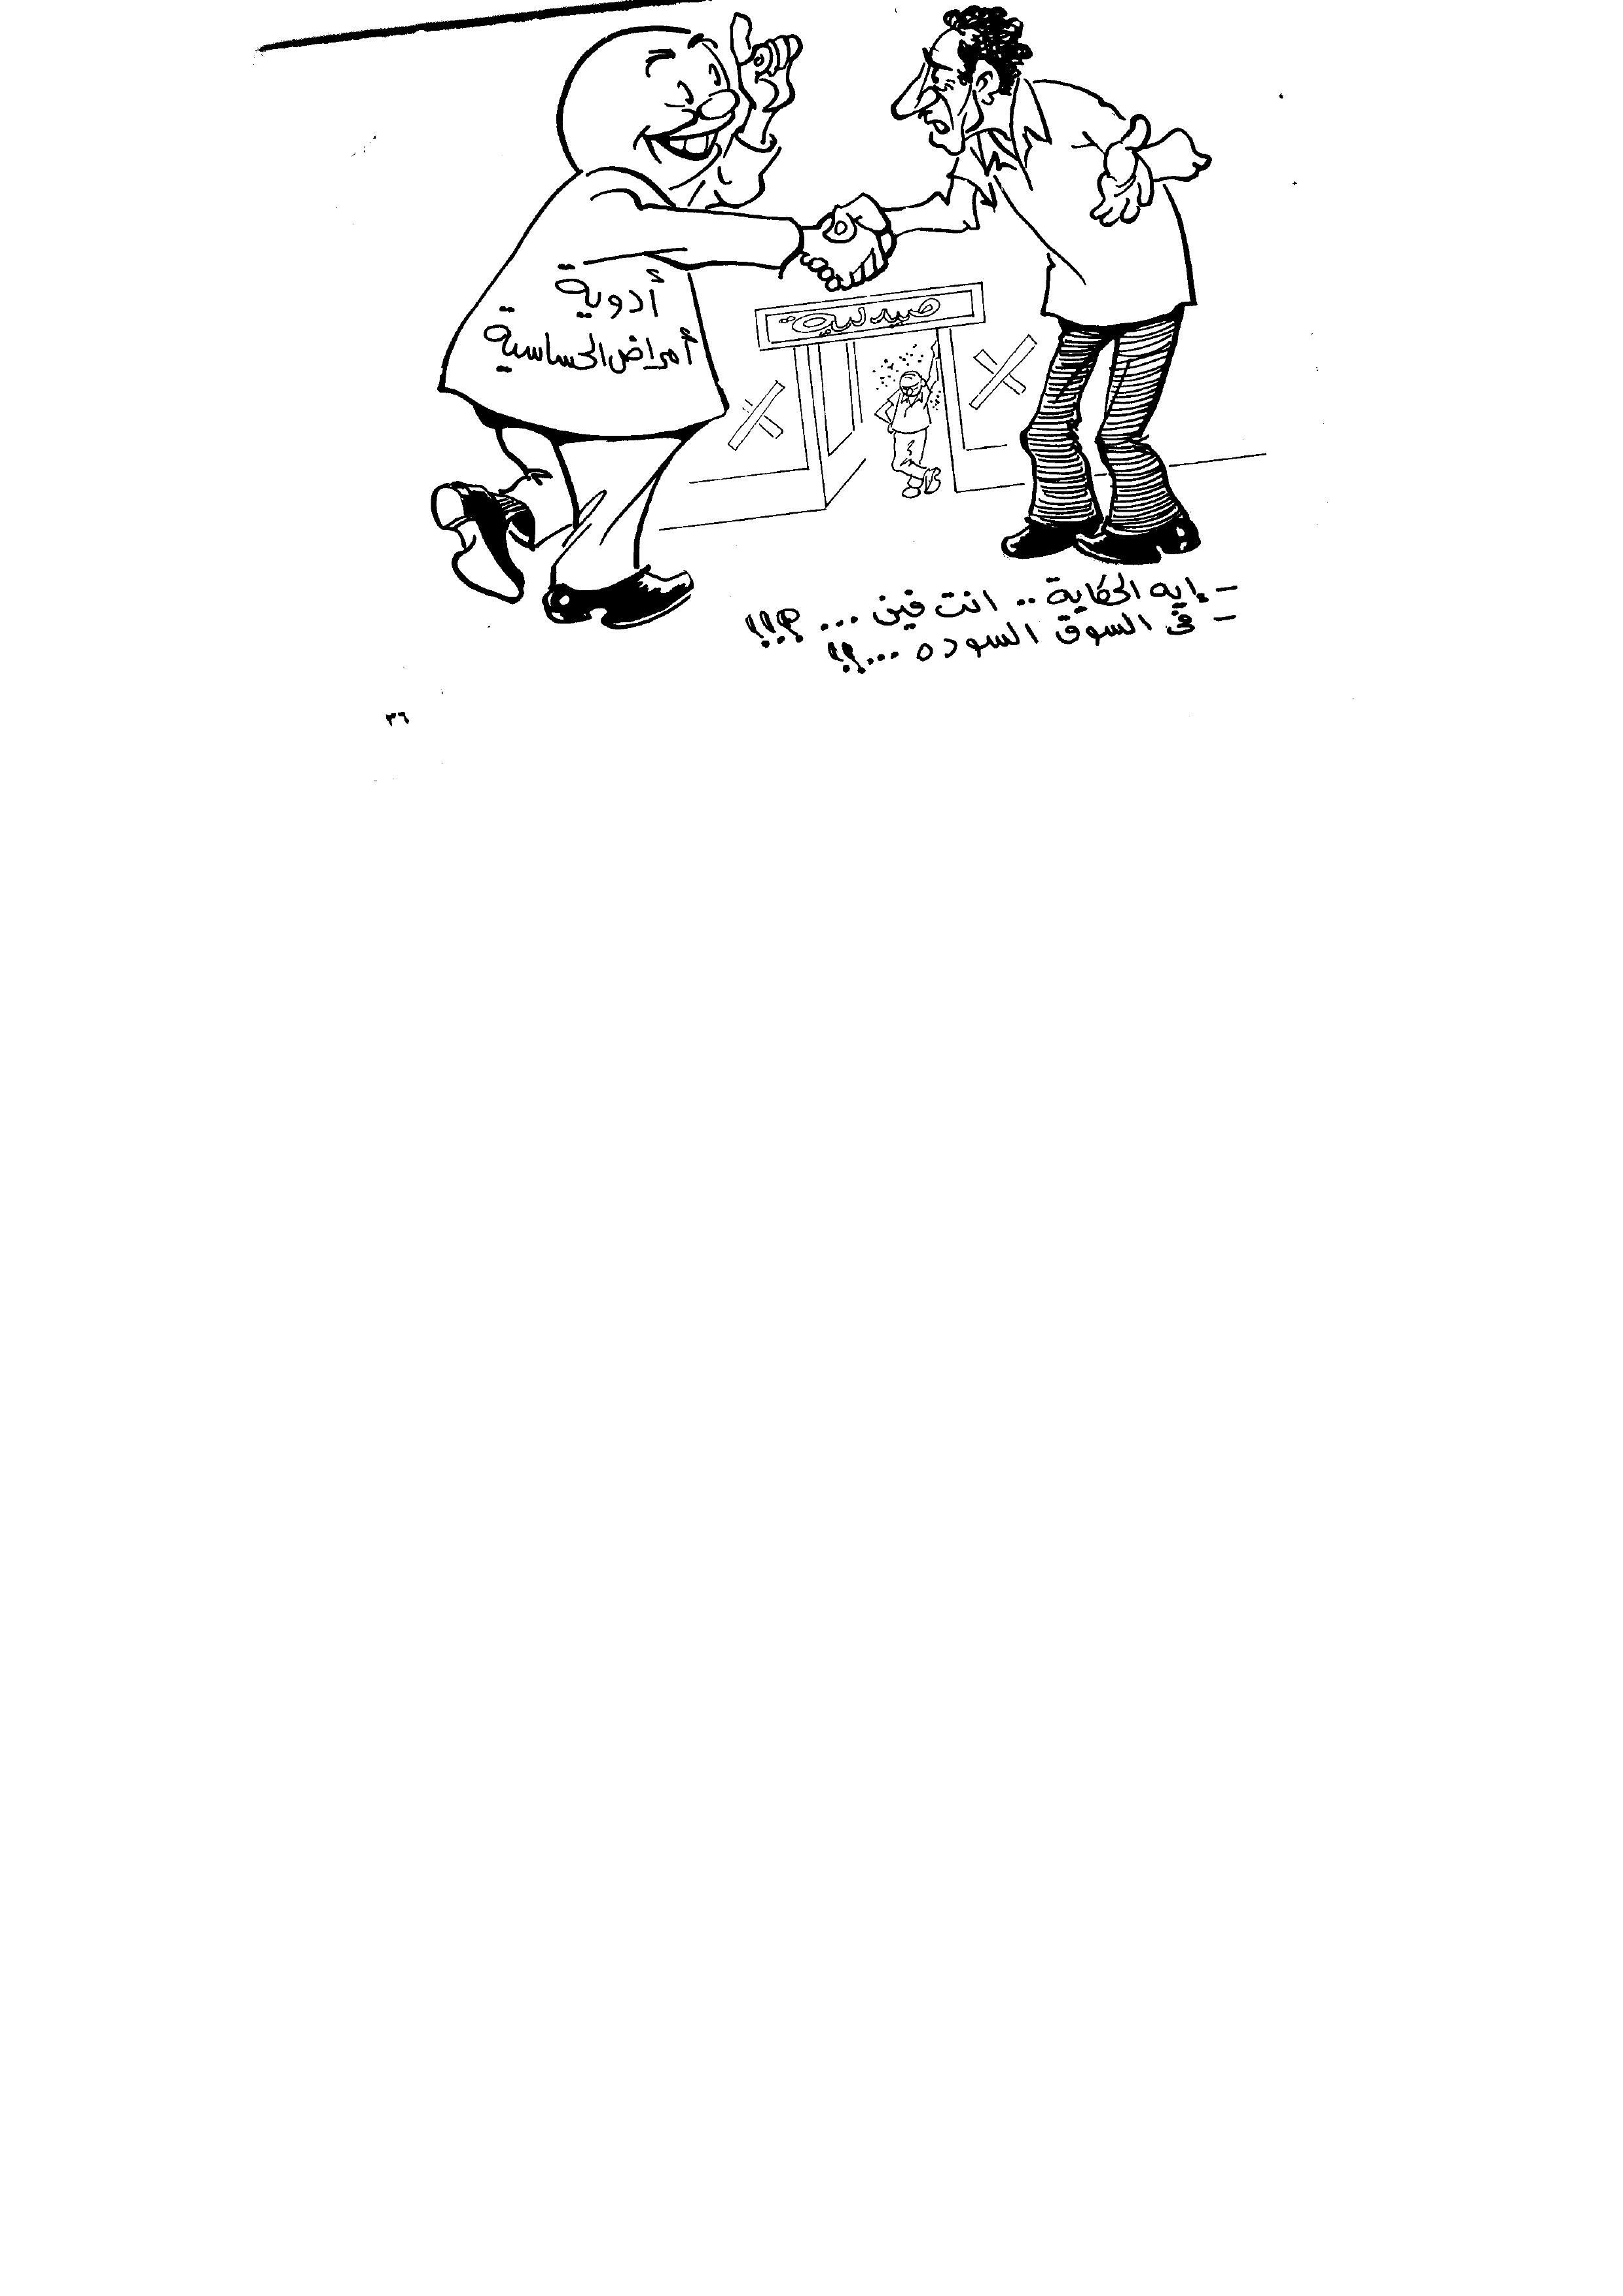 أدوية
أمراض الحساسية
صيدلية
- إيه الحكاية .. انت فين ... ؟!!
- فى السوق السوده ...!!
٣٦